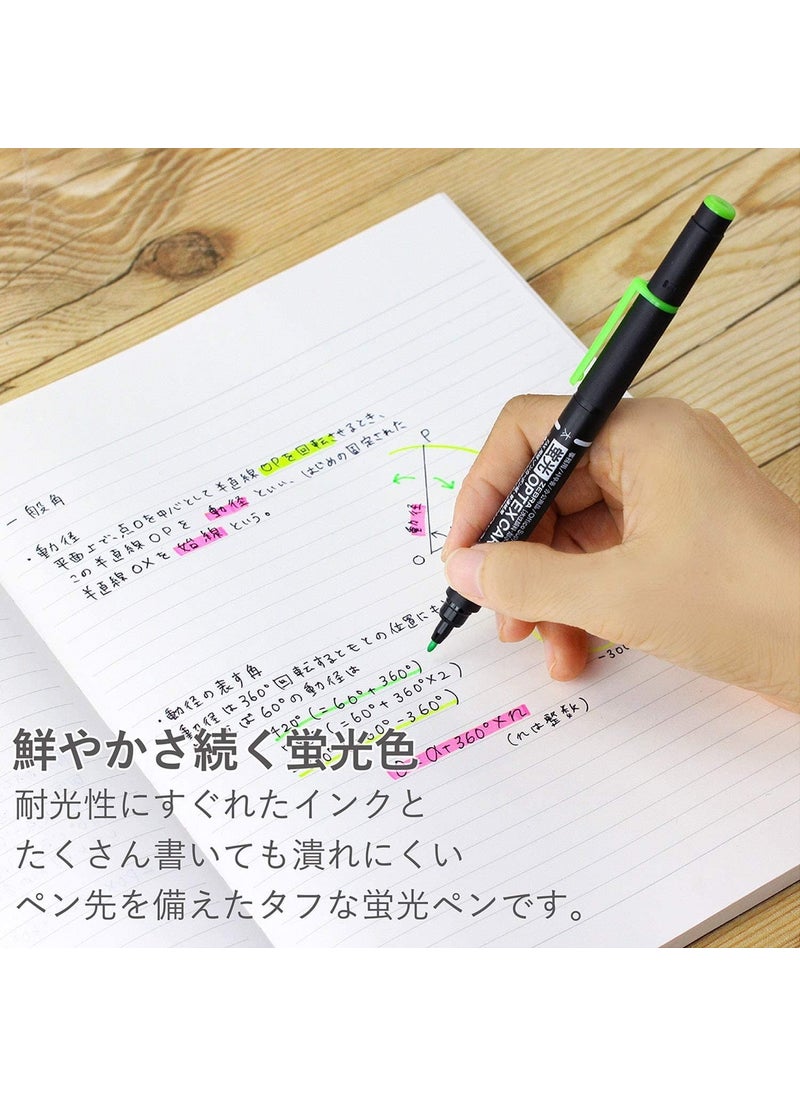 一般角
・動径
平面上で、点Oを中心として半直線OPを回転させるとき、
この半直線OPを動径といい、はじめの固定された
半直線OXを始線という。
P
動径
O
・動径の表す角
動径は360°回転するともとの位置にも
ば60°の動径は
420°(=60°+360°)
(=60°+360°×2)
60°-360°)
α+360°×n
(nは整数)
-300
太
蛍光 OPTEX CA
ZEBRA
鮮やかさ続く蛍光色
耐光性にすぐれたインクと
たくさん書いても潰れにくい
ペン先を備えたタフな蛍光ペンです。